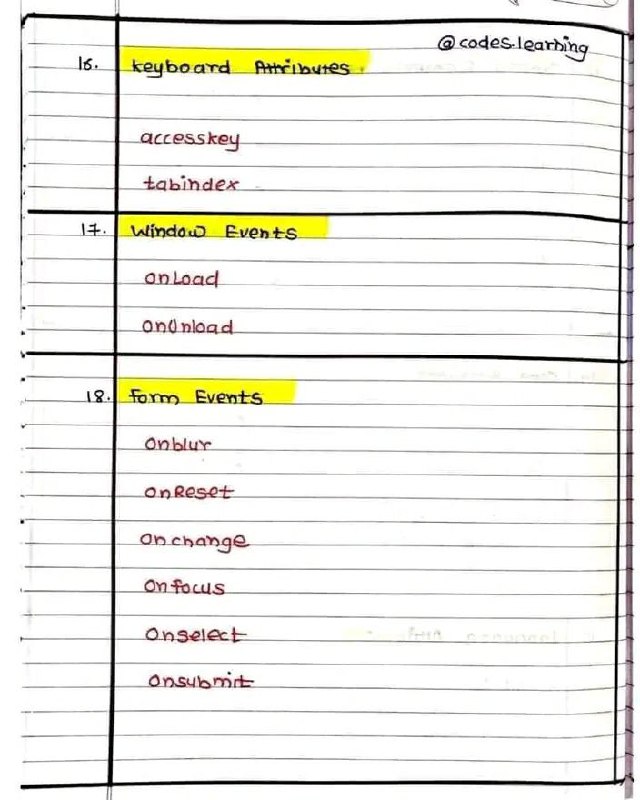 @codes.learning
16. Keyboard Attributes.
accesskey
tabindex
17. Window Events
onLoad
onUnload
18. Form Events
Onblur
OnReset
Onchange
Onfocus
Onselect
Onsubmit